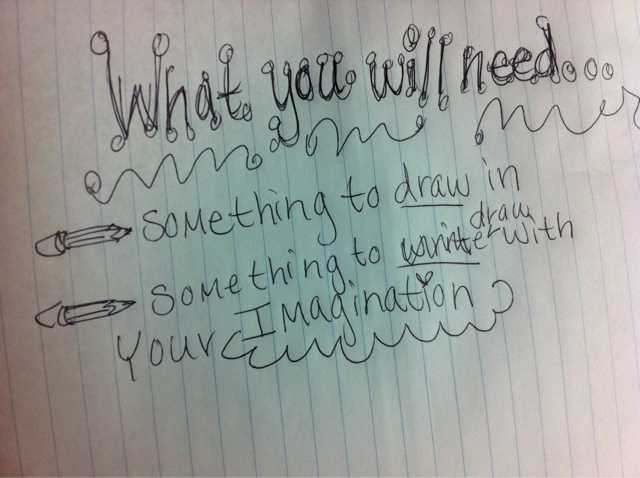 What you will need...
Something to draw in
draw
Something to write with
Your Imagination